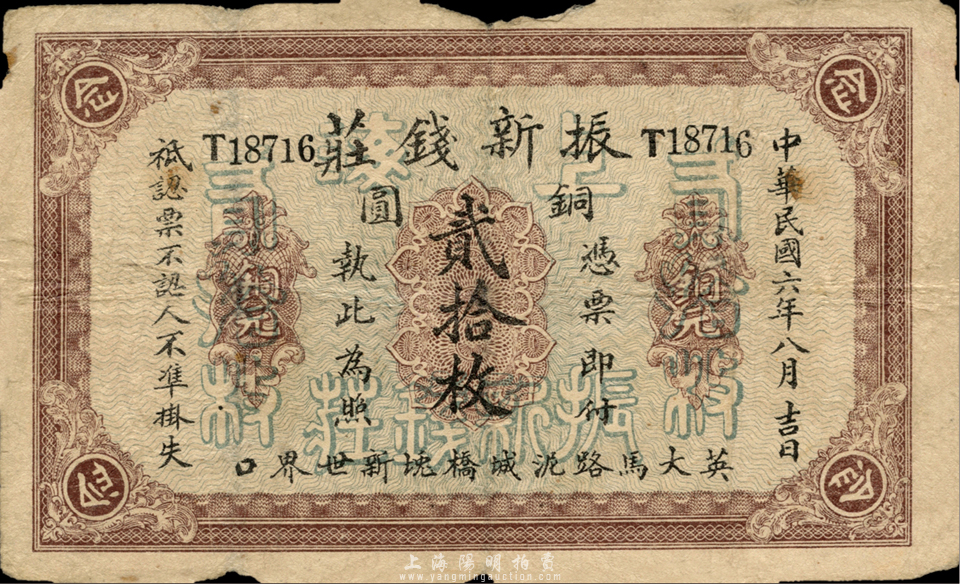 振新錢莊
T18716
T18716
中華民國六年八月吉日
銅圓
憑票即付
貳拾枚
執此為照
祇認票不認人不准掛失
英大馬路泥城橋堍新世界口
銅元
上海陽明拍賣
www.yangmingauction.com